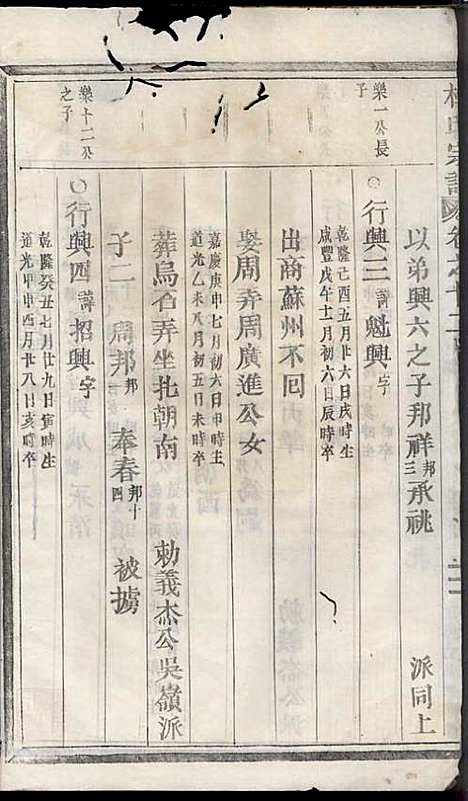 以弟興六之子邦祥邦三承祧 派同上
樂一公長子
○行興三諱魁興字
乾隆己酉五月廿六日戌時生
咸豐戊午十二月初六日辰時卒
出商蘇州不回
娶周弄周廣進公女
嘉慶庚申七月初六日申時生
道光乙未八月初五日未時卒
葬烏石弄坐北朝南 勅義杰公吳嶺派
子二 周邦邦 奉春邦十四 被擄
樂十二公之子
○行興四諱招興字
乾隆癸丑七月廿九日寅時生
道光甲申四月廿八日亥時卒